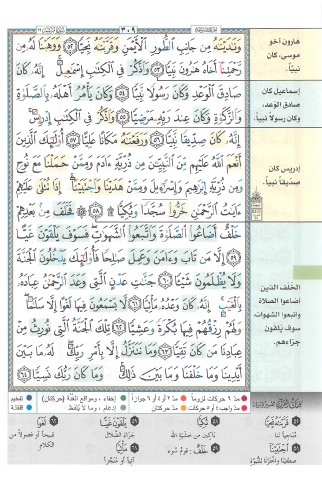 ٣٠٩
وَنَٰدَيْنَٰهُ مِن جَانِبِ ٱلطُّورِ ٱلْأَيْمَنِ وَقَرَّبْنَٰهُ نَجِيًّا ۝٥٢ وَوَهَبْنَا لَهُۥ مِن
رَّحْمَتِنَآ أَخَاهُ هَٰرُونَ نَبِيًّا ۝٥٣ وَٱذْكُرْ فِى ٱلْكِتَٰبِ إِسْمَٰعِيلَ ۚ إِنَّهُۥ كَانَ
صَادِقَ ٱلْوَعْدِ وَكَانَ رَسُولًا نَّبِيًّا ۝٥٤ وَكَانَ يَأْمُرُ أَهْلَهُۥ بِٱلصَّلَوٰةِ
وَٱلزَّكَوٰةِ وَكَانَ عِندَ رَبِّهِۦ مَرْضِيًّا ۝٥٥ وَٱذْكُرْ فِى ٱلْكِتَٰبِ إِدْرِيسَ ۚ
إِنَّهُۥ كَانَ صِدِّيقًا نَّبِيًّا ۝٥٦ وَرَفَعْنَٰهُ مَكَانًا عَلِيًّا ۝٥٧ أُو۟لَٰٓئِكَ ٱلَّذِينَ
أَنْعَمَ ٱللَّهُ عَلَيْهِم مِّنَ ٱلنَّبِيِّـۧنَ مِن ذُرِّيَّةِ ءَادَمَ وَمِمَّنْ حَمَلْنَا مَعَ نُوحٍ
وَمِن ذُرِّيَّةِ إِبْرَٰهِيمَ وَإِسْرَٰٓءِيلَ وَمِمَّنْ هَدَيْنَا وَٱجْتَبَيْنَآ ۚ إِذَا تُتْلَىٰ عَلَيْهِمْ
ءَايَٰتُ ٱلرَّحْمَٰنِ خَرُّوا۟ سُجَّدًا وَبُكِيًّا ۩ ۝٥٨ فَخَلَفَ مِنۢ بَعْدِهِمْ
خَلْفٌ أَضَاعُوا۟ ٱلصَّلَوٰةَ وَٱتَّبَعُوا۟ ٱلشَّهَوَٰتِ ۖ فَسَوْفَ يَلْقَوْنَ غَيًّا
۝٥٩ إِلَّا مَن تَابَ وَءَامَنَ وَعَمِلَ صَٰلِحًا فَأُو۟لَٰٓئِكَ يَدْخُلُونَ ٱلْجَنَّةَ
وَلَا يُظْلَمُونَ شَيْـًٔا ۝٦٠ جَنَّٰتِ عَدْنٍ ٱلَّتِى وَعَدَ ٱلرَّحْمَٰنُ عِبَادَهُۥ
بِٱلْغَيْبِ ۚ إِنَّهُۥ كَانَ وَعْدُهُۥ مَأْتِيًّا ۝٦١ لَّا يَسْمَعُونَ فِيهَا لَغْوًا إِلَّا سَلَٰمًا ۖ
وَلَهُمْ رِزْقُهُمْ فِيهَا بُكْرَةً وَعَشِيًّا ۝٦٢ تِلْكَ ٱلْجَنَّةُ ٱلَّتِى نُورِثُ مِنْ
عِبَادِنَا مَن كَانَ تَقِيًّا ۝٦٣ وَمَا نَتَنَزَّلُ إِلَّا بِأَمْرِ رَبِّكَ ۖ لَهُۥ مَا بَيْنَ
أَيْدِينَا وَمَا خَلْفَنَا وَمَا بَيْنَ ذَٰلِكَ ۚ وَمَا كَانَ رَبُّكَ نَسِيًّا ۝٦٤
هارون أخو
موسى، كان
نبيّاً.
إسماعيل كان
صادق الوعد،
وكان رسولاً نبياً.
إدريس كان
صدّيقاً نبياً.
الخلف الذين
أضاعوا الصلاة
واتبعوا الشهوات
سوف يلقون
جزاءهم.
مدّ ٦ حركات لزوماً
مدّ ٢ أو ٤ أو ٦ جوازاً
إخفاء، ومواقع الغنّة (حركتان)
تفخيم
مدّ واجب ٤ أو ٥ حركات
مدّ حركتان
إدغام، وما لا يُلفظ
قلقلة